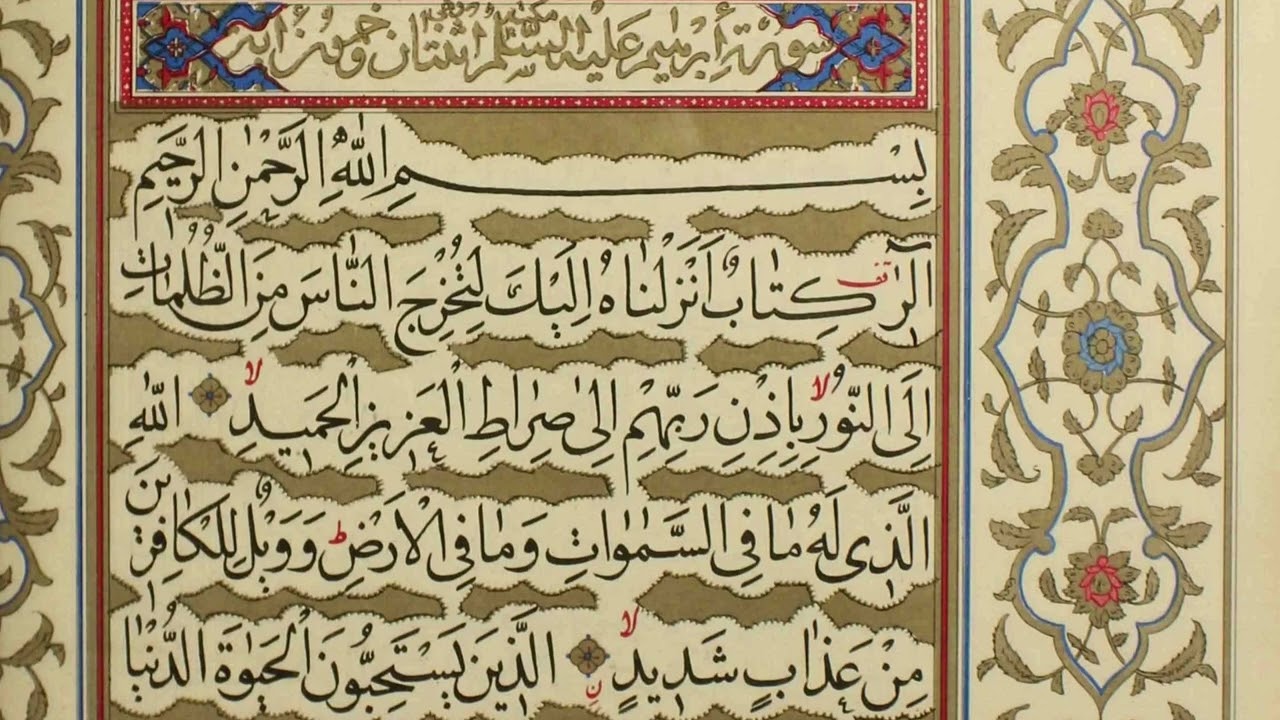 سورة أبرهيم عليه السلم اثنتان وخمسون آية مكية وهي
بِسْمِ اللّٰهِ الرَّحْمٰنِ الرَّحِيمِ
الٓرٰ قف كِتَابٌ اَنْزَلْنَاهُ اِلَيْكَ لِتُخْرِجَ النَّاسَ مِنَ الظُّلُمَاتِ
اِلَى النُّورِ لا بِاِذْنِ رَبِّهِمْ اِلٰى صِرَاطِ الْعَزِيزِ الْحَمِيدِ لا اللّٰهِ
الَّذِى لَهُ مَا فِى السَّمٰوَاتِ وَمَا فِى الْاَرْضِ ط وَوَيْلٌ لِلْكَافِرِينَ
مِنْ عَذَابٍ شَدِيدٍ لا ن الَّذِينَ يَسْتَحِبُّونَ الْحَيٰوةَ الدُّنْيَا